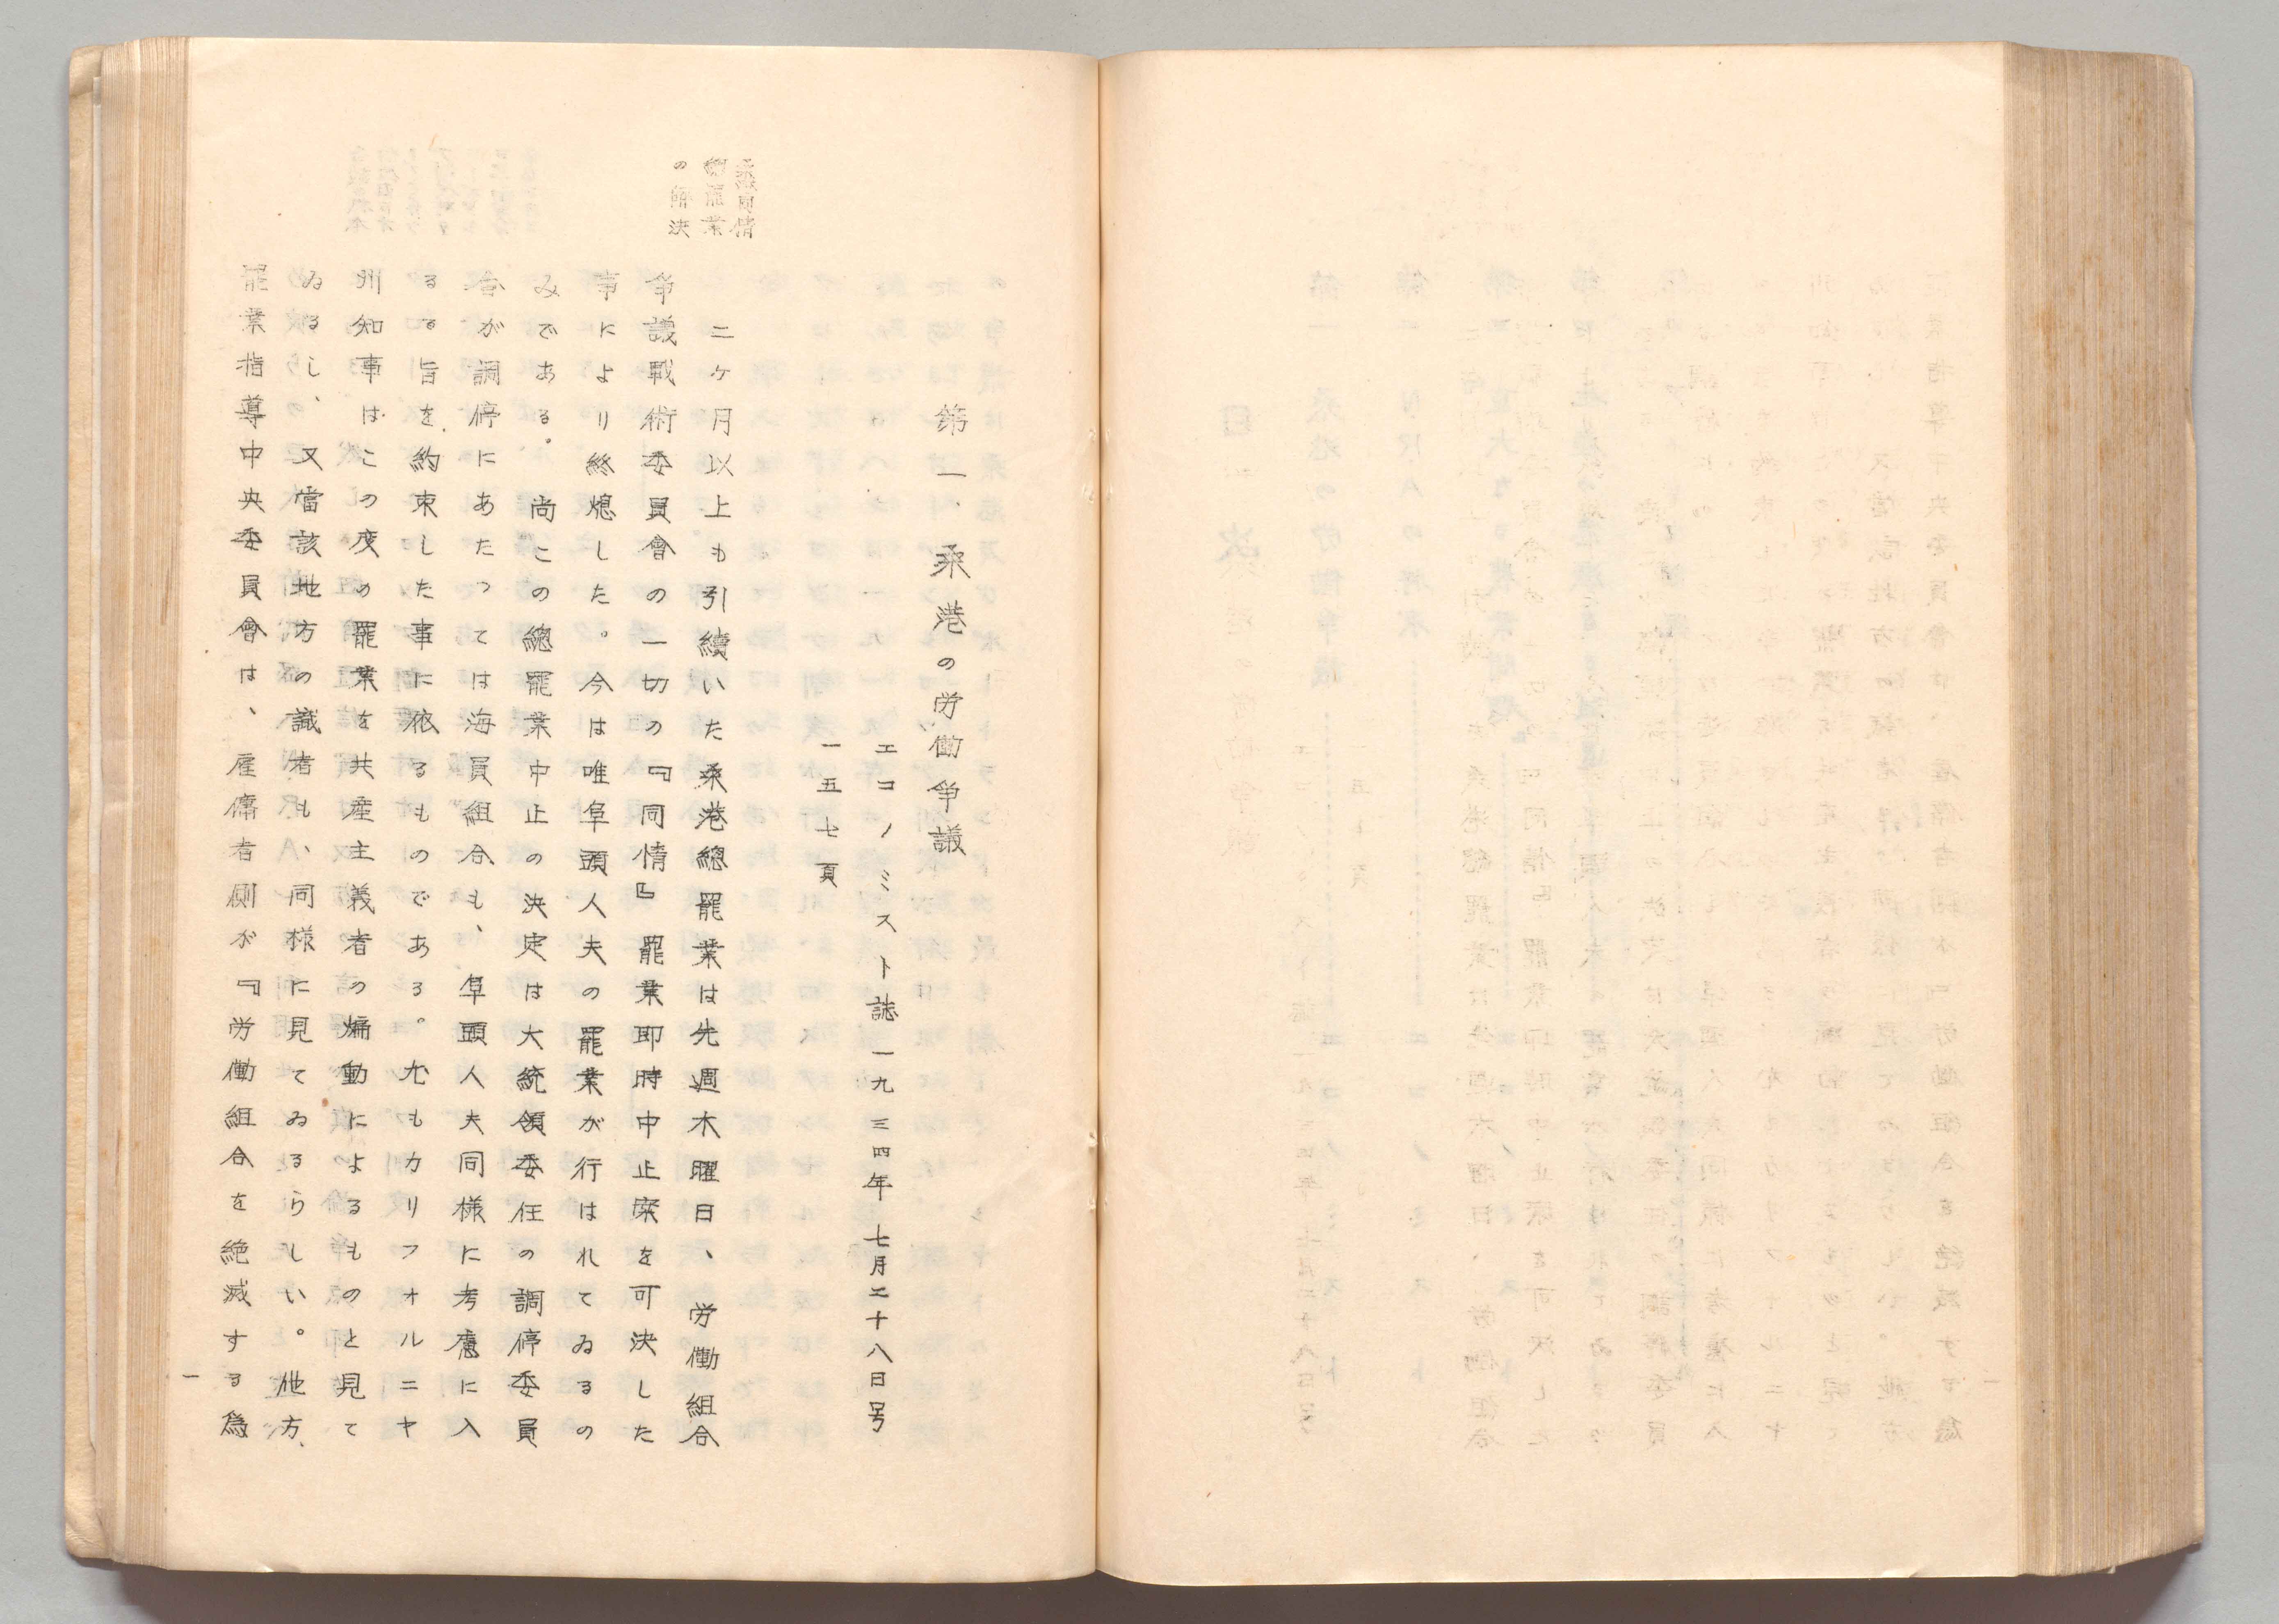 第一、桑港の労働争議
エコノミスト誌一九三四年七月二十八日号
一五七頁
桑港同情
總罷業
の解決
二ヶ月以上も引續いた桑港總罷業は先週木曜日、労働組合
争議戰術委員會の一切の『同情』罷業即時中止案を可決した
事により終熄した。今は唯阜頭人夫の罷業が行はれてゐるの
みである。尚この總罷業中止の決定は大統領委任の調停委員
會が調停にあたっては海員組合も、阜頭人夫同様に考慮に入
るる旨を約束した事に依るものである。尤もカリフオルニヤ
州知事はこの度の罷業を共産主義者の煽動によるものと見て
ゐるし、又當該地方の識者も、同様に見てゐるらしい。他方、
罷業指導中央委員會は、雇傭者側が『労働組合を絶滅する為
一